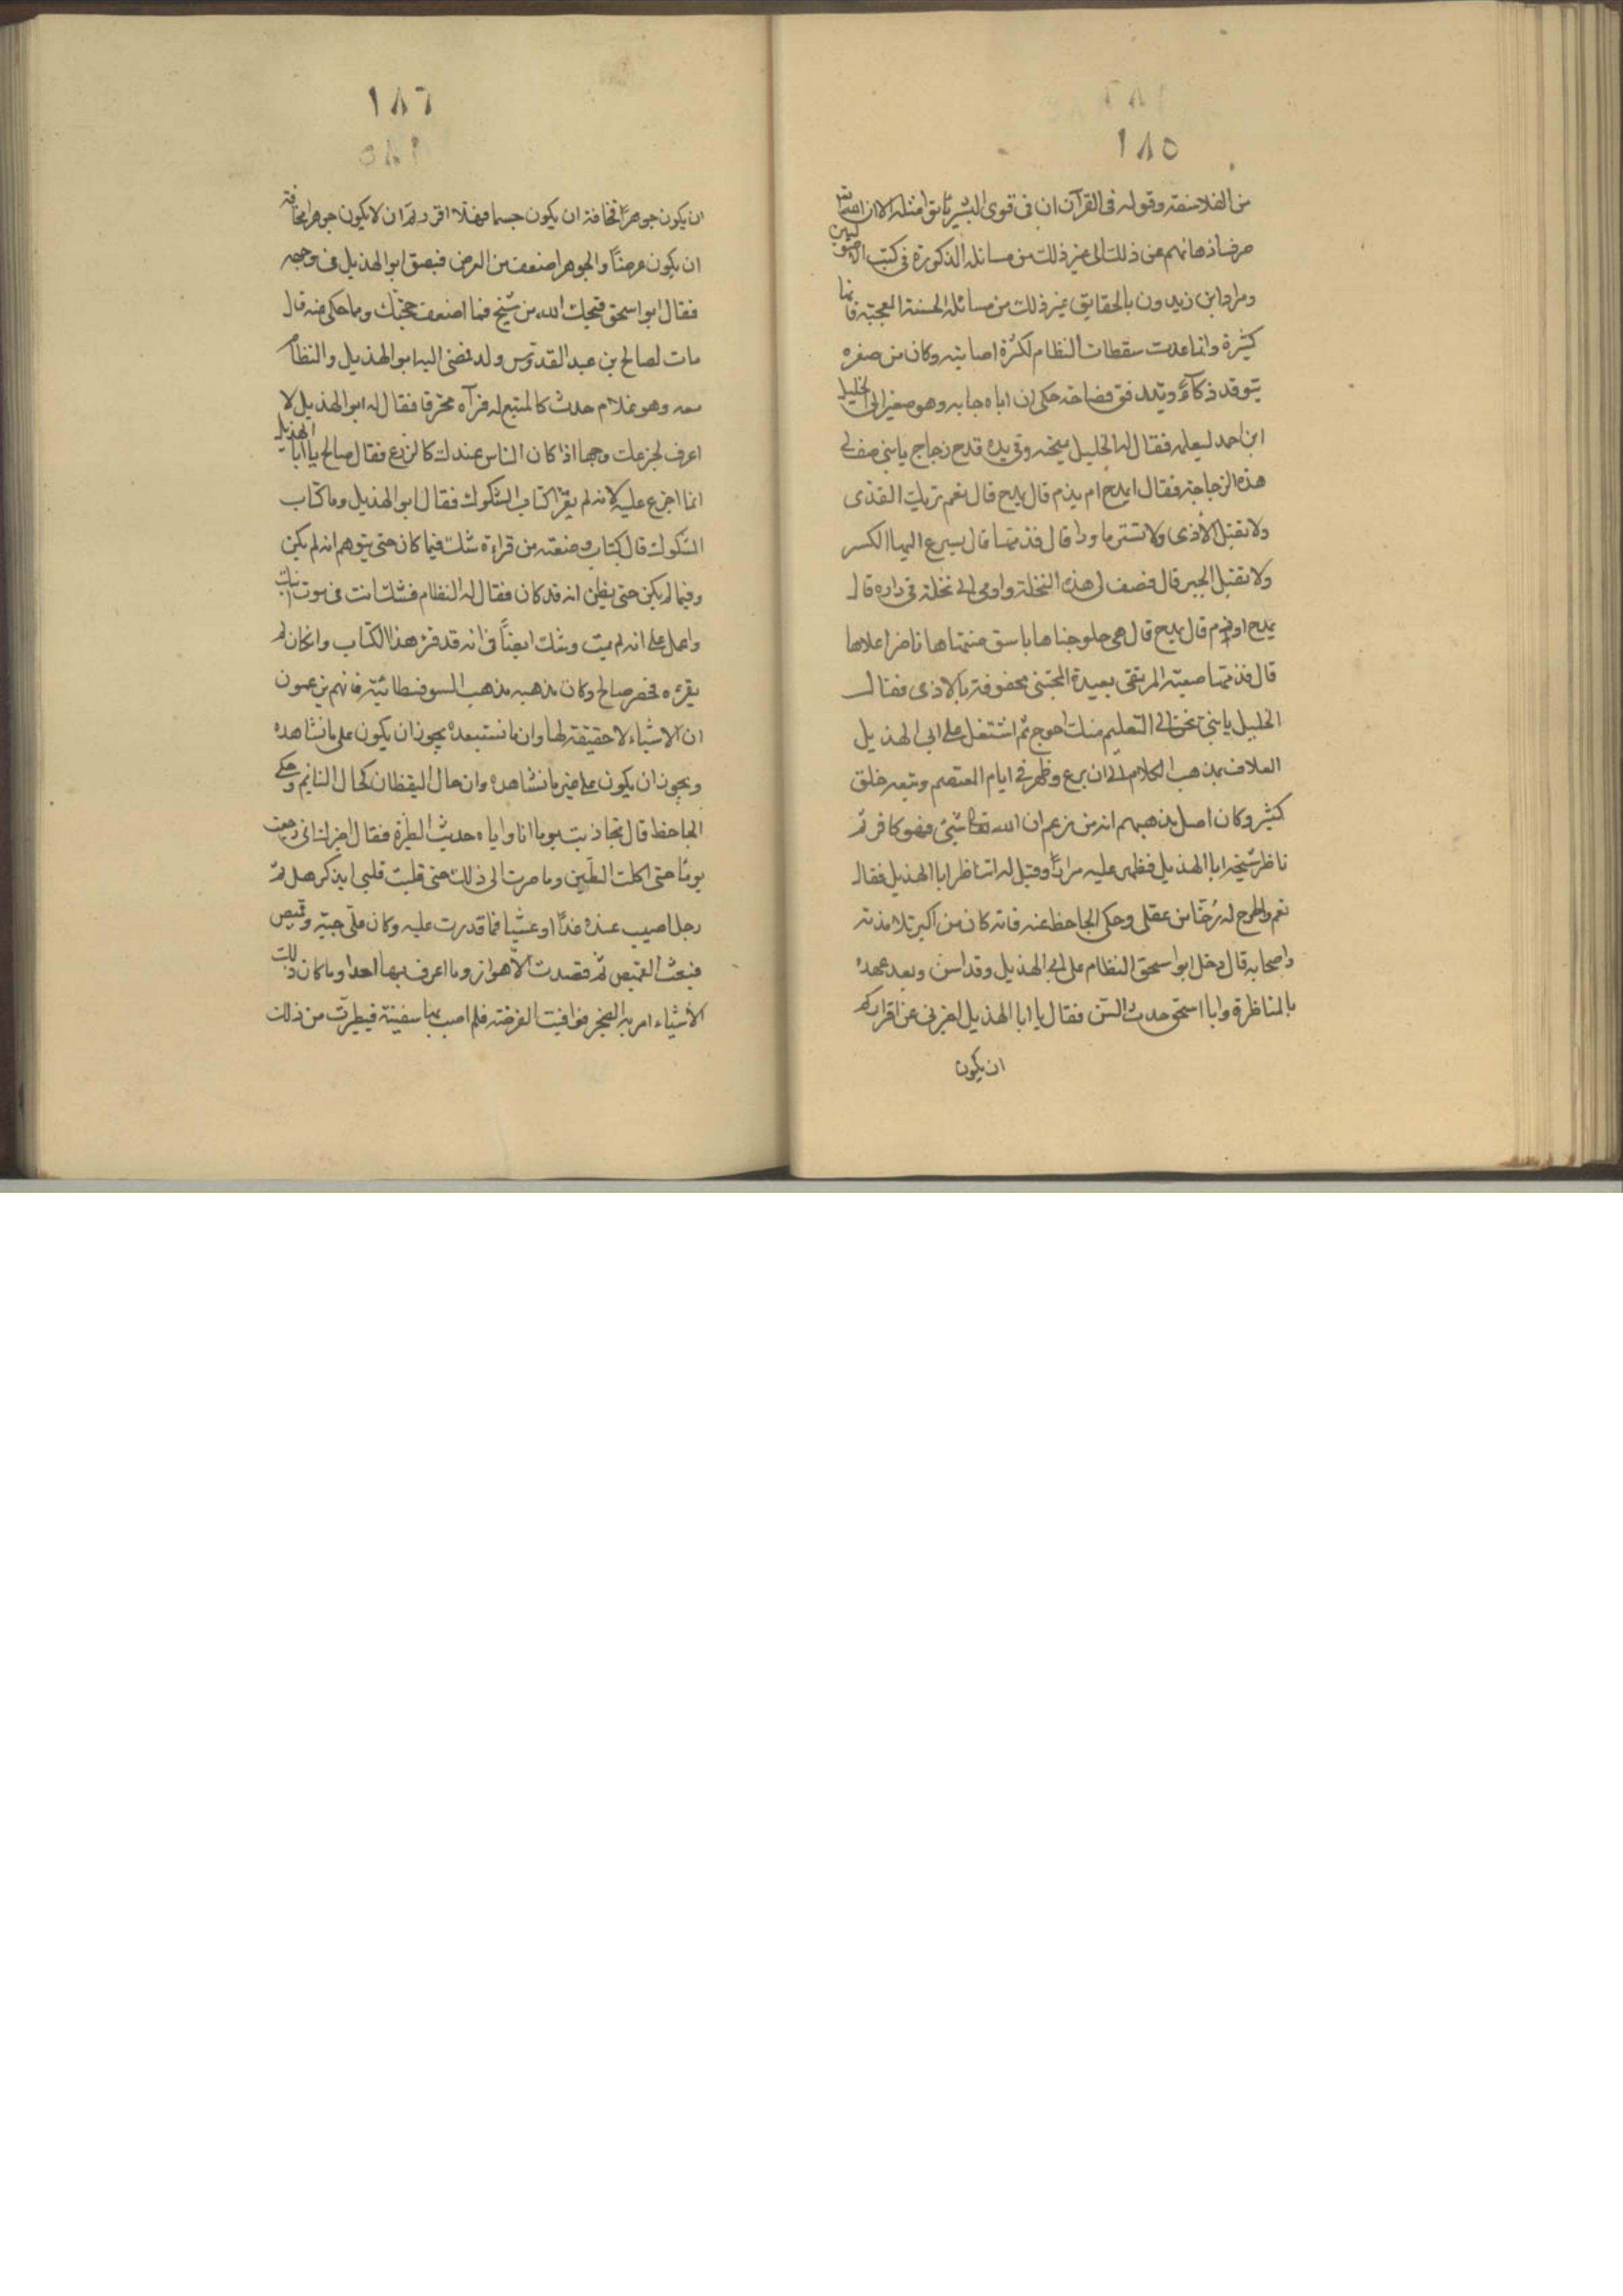 ١٨٥
من الفلاسفة وقوله فى القرآن ان فى قوى البشر يأتوا مثله الا ان الله تعالى
صرف اذهانهم عن ذلك الى غير ذلك من مسائله المذكورة فى كتب الاصوليين
ومراد ابن زيدون بالحقايق غير ذلك من مسائله الحسنة العجيبة فانها
كثيرة وانما عدت سقطات النظام لكثرة اصابته وكان من صغره
يتوقد ذكآءً ويتدفق فصاحة حكى ان اباه جابه وهو صغير الى الخليل
ابن احمد ليعلمه فقال له الخليل يمتحنه وفى يده قدح زجاج يا بنى صف لى
هذه الزجاجة فقال ايمدح ام يذم قال بمدح قال نعم تريك القذى
ولا تقبل الاذى ولا تستر ما ورا قال فذمها قال يسرع اليها الكسر
ولا تقبل الجبر قال فصف لى هذه النخلة واومى الى نخلة فى داره قال
بمدح او بذم قال بمدح قال هى حلو جناها باسق منتهاها ناضر اعلاها
قال فذمها صعبة المرتقى بعيدة المجتنى محفوفة بالاذى فقال
الخليل يا بنى نحن الى التعليم منك احوج ثم اشتغل على ابى الهذيل
العلاف بمذهب الكلام الى ان برع وظهر فى ايام المعتصم وتبعه خلق
كثير وكان اصل مذهبهم انه من زعم ان الله تعالى شئ فهو كافر ثم
ناظر شيخه ابا الهذيل فظهر عليه مرارًا وقيل له اتناظر ابا الهذيل فقال
نعم واطرح له رُخًّا من عقلى وحكى الجاحظ عنه فانه كان من اكبر تلامذته
واصحابه قال دخل ابو اسحق النظام على ابى الهذيل وقد اسن وبعد عهده
بالمناظرة وابا اسحق حدث السن فقال يا ابا الهذيل اخبرنى عن اقراركم
ان يكون
١٨٦
ان يكون جوهرًا مخافة ان يكون جسما فهلا اقررتم ان لا يكون جوهرا مخافة
ان يكون عرضًا والجوهر اضعف من العرض فبصق ابو الهذيل فى وجهه
فقال ابو اسحق قبحك الله من شيخ فما اضعف حجتك وما حكى عنه قال
مات لصالح بن عبد القدوس ولد فمضى اليه ابو الهذيل والنظام
معه وهو غلام حدث كالمتبع له فرآه محترقا فقال له ابو الهذيل لا
اعرف لجزعك وجها اذا كان الناس عندك كالزرع فقال صالح يا ابا الهذيل
انما اجزع عليه لانه لم يقرأ كتاب الشكوك فقال ابو الهذيل وما كتاب
الشكوك قال كتاب وضعته من قراءة شك فيما كان حتى يتوهم انه لم يكن
وفيما لم يكن حتى يظن انه قد كان فقال له النظام فشك انت فى موت ابنك
واعمل على انه لم يمت وشك ايضًا فى انه قد قرء هذا الكتاب وان كان لم
يقرءه فحصر صالح وكان مذهبه مذهب السوفسطائية فانهم يزعمون
ان الاشياء لا حقيقة لها وان ما نستبعده يجوز ان يكون على ما نشاهده
ويجوز ان يكون على غير ما نشاهده وان حال اليقظان كحال النايم وحكى
الجاحظ قال تجاذبت يوما انا واياه حديث الطيرة فقال اخبرك انى جعت
يومًا حتى اكلت الطين وما صرت الى ذلك حتى قلبت قلبى ايذكر هل ثم
رجل اصيب عنده غداً او عشيا فما قدرت عليه وكان على جبة وقميص
فبعت القميص ثم قصدت الاهواز وما اعرف بها احدا وما كان ذلك
الاشياء امر به الضجر فوافيت الفرضة فلم اصب بها سفينة فتطيرت من ذلك